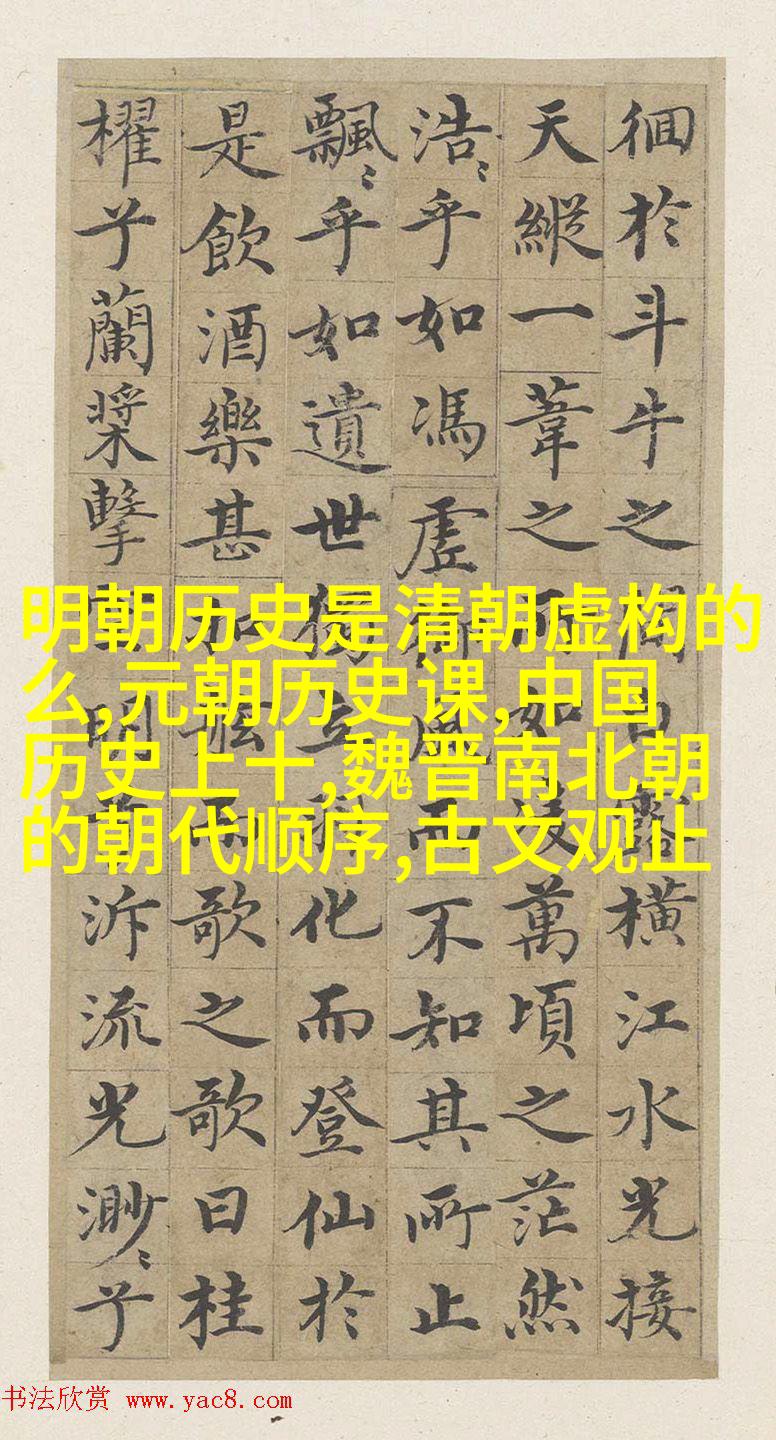 徊於斗牛之間白露橫江水光接
天縱一葦之所如凌萬頃之茫然
浩〻乎如馮虛御風而不知其所止
飄〻乎如遺世獨立羽化而登仙於
是飲酒樂甚扣舷而歌之歌曰桂
櫂兮蘭槳擊空明兮泝流光渺〻兮
明朝历史是清朝虚构的
么,元朝历史课,中国
历史上十,魏晋南北朝
的朝代顺序,古文观止
书法欣赏 www.yac8.com